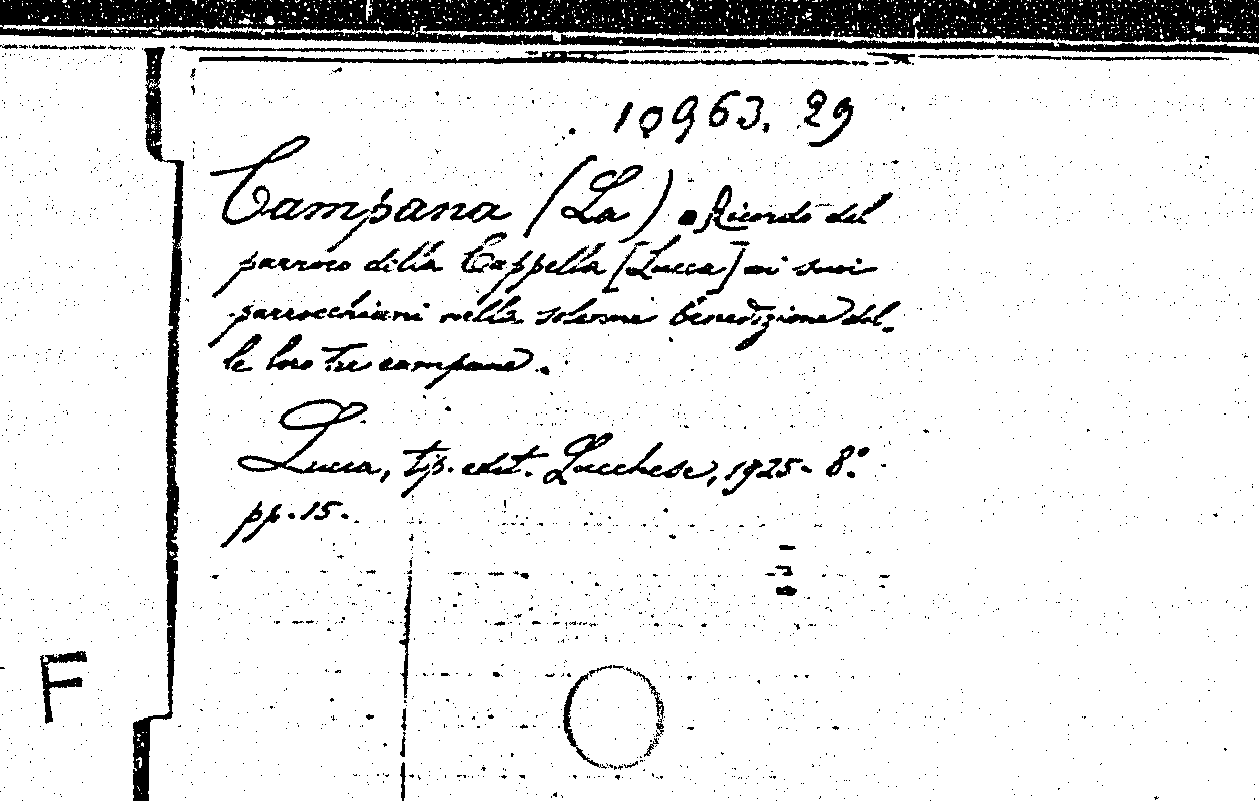 10963. 29
Campana (La) Ricordo del
parroco della Cappella [Lucca] ai suoi
parrocchiani nella solenne benedizione del-
le loro tre campane.
Lucca, tip. edit. Lucchese, 1925 - 8.°
pp. 15.
F